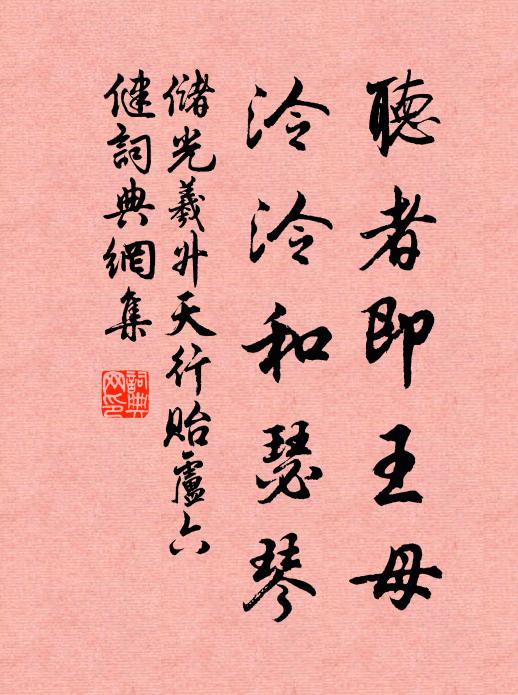 聽者即王母
泠泠和瑟琴
儲光羲升天行貽盧六
健詞典網集
詞典網印